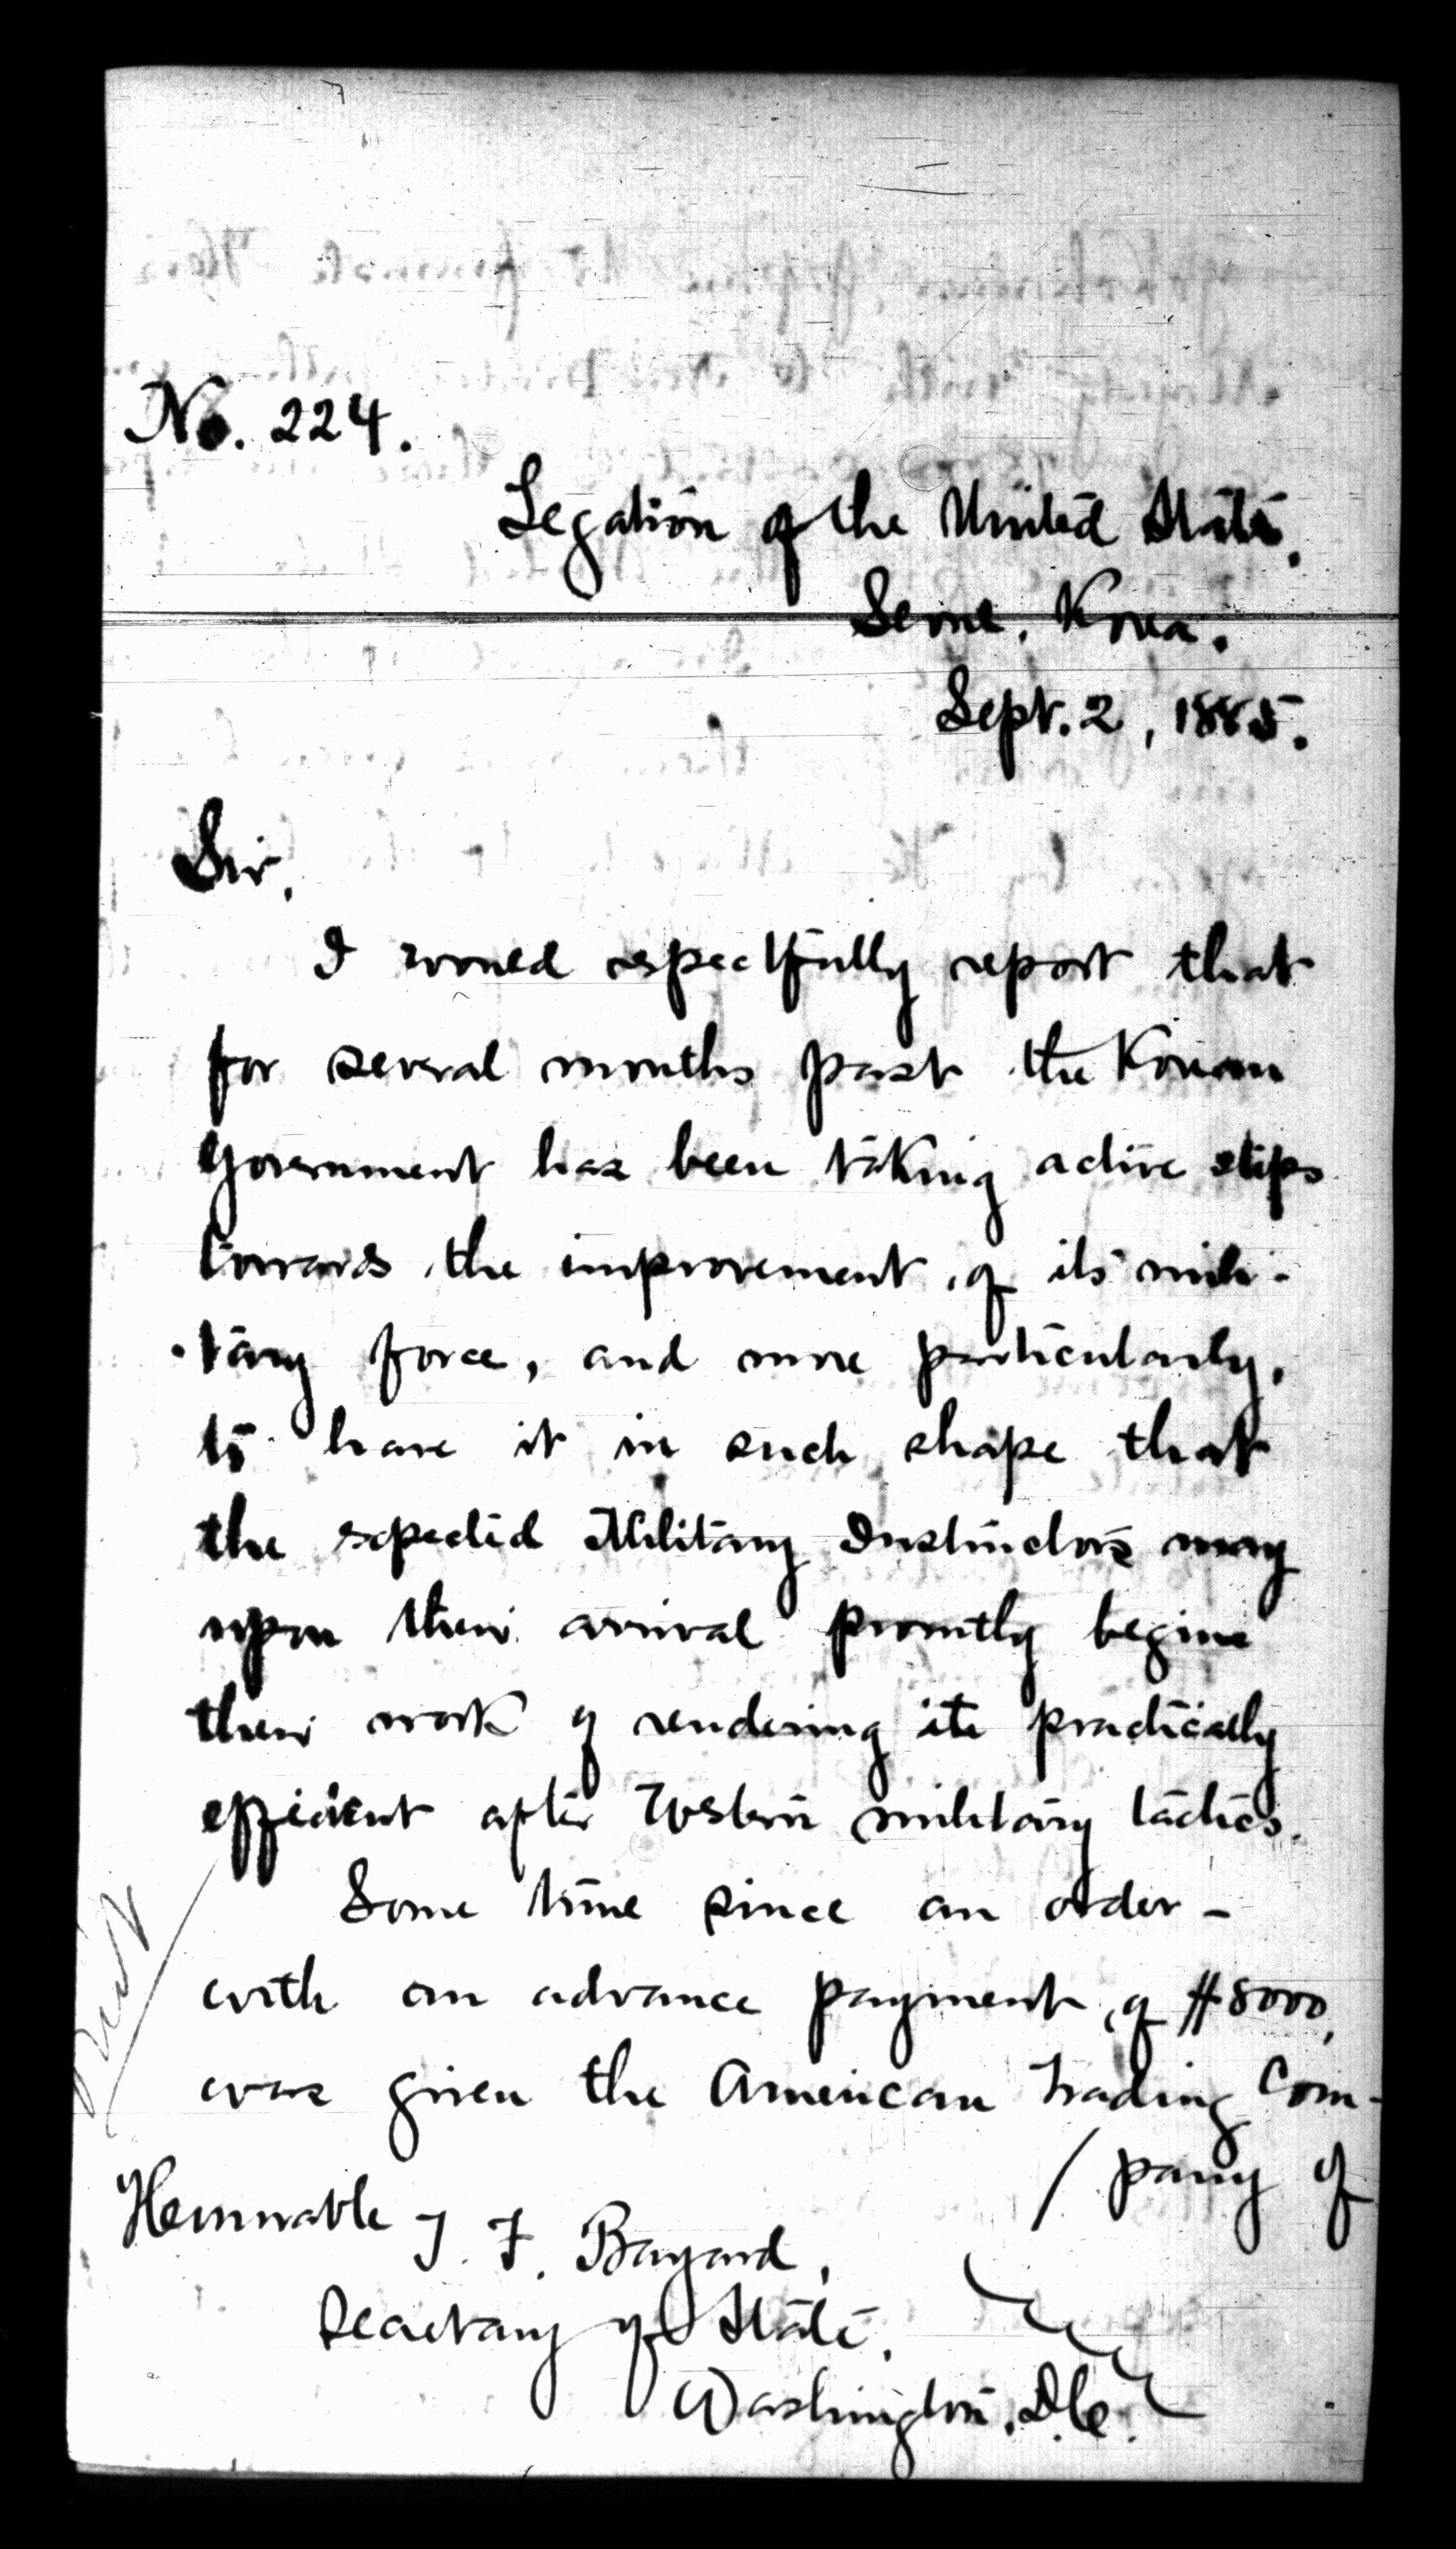 No. 224.
Legation of the United States,
Seoul, Korea.
Sept. 2, 1885.
Sir,
I would respectfully report that
for several months past the Korean
Government has been taking active steps
towards the improvement, of its mili-
-tary force, and more particularly,
to have it in such shape that
the expected Military Instructors may
upon their arrival promtly begine
their work of rendering it practically
efficient after Western military tactics.
Some time since an order -
with an advance payment, of $8000,
was given the American Trading Com-
/ pany of
Honorable T. F. Bayard,
Secretary of State,
Washington, D.C.